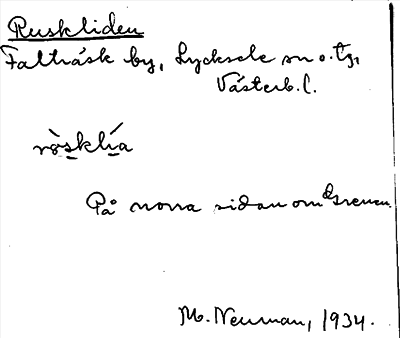 Ruskliden
Falträsk by, Lycksele sn o. tg,
Västerb. l.
rö̀sklía
På norra sidan om
M. Neuman, 1934.